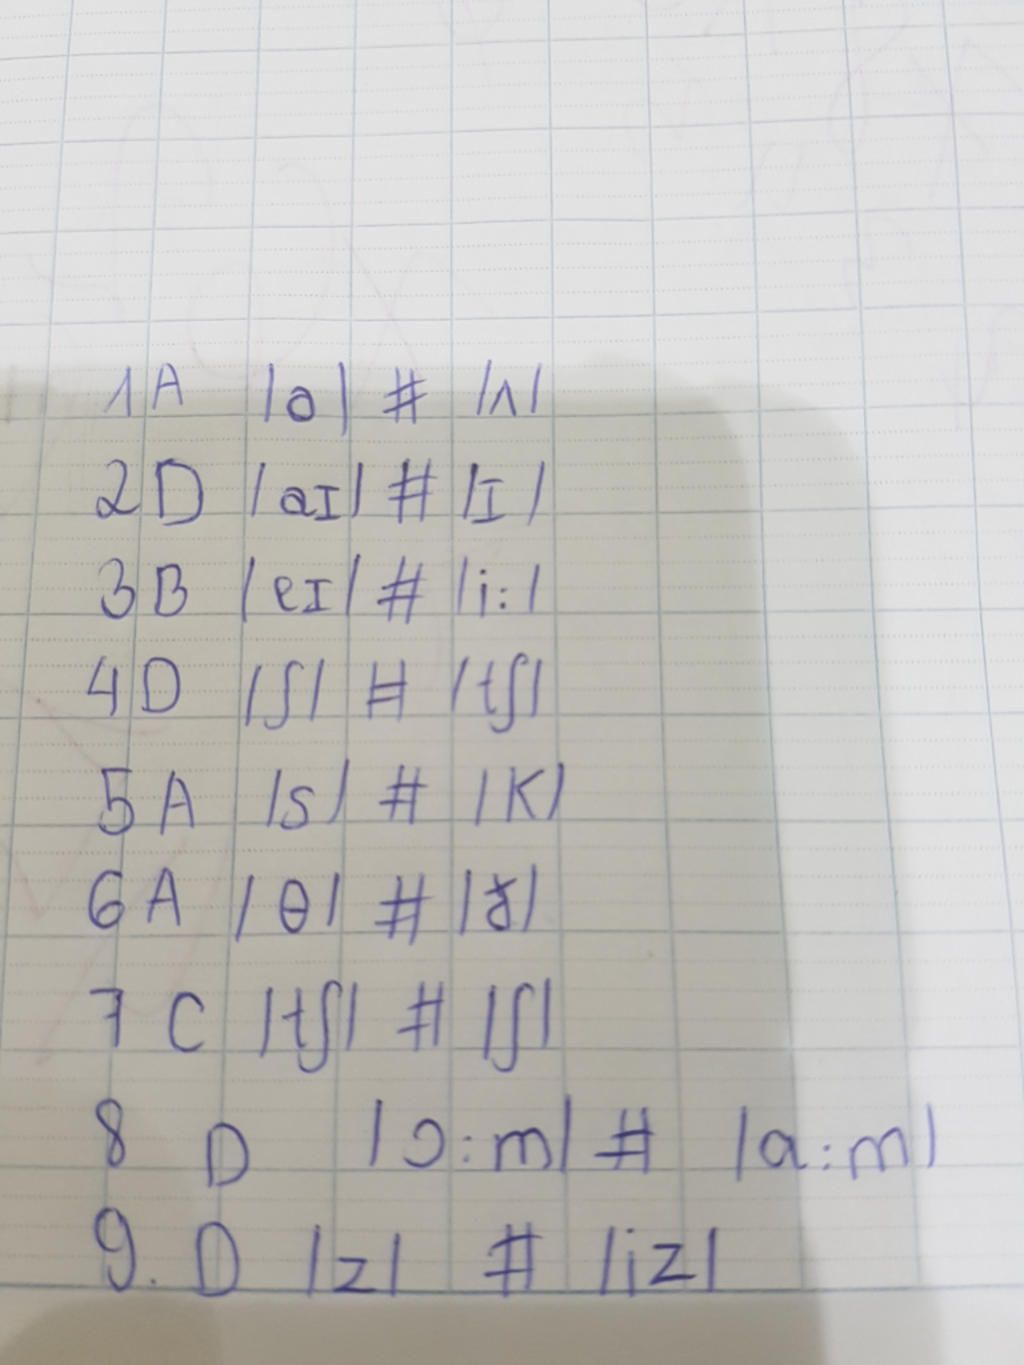 1 A /ə/ # /ʌ/
2 D /aɪ/ # /ɪ/
3 B /eɪ/ # /i:/
4 D /ʃ/ # /tʃ/
5 A /s/ # /k/
6 A /θ/ # /ð/
7 C /tʃ/ # /ʃ/
8 D /ɔ:m/ # /a:m/
9. D /z/ # /iz/